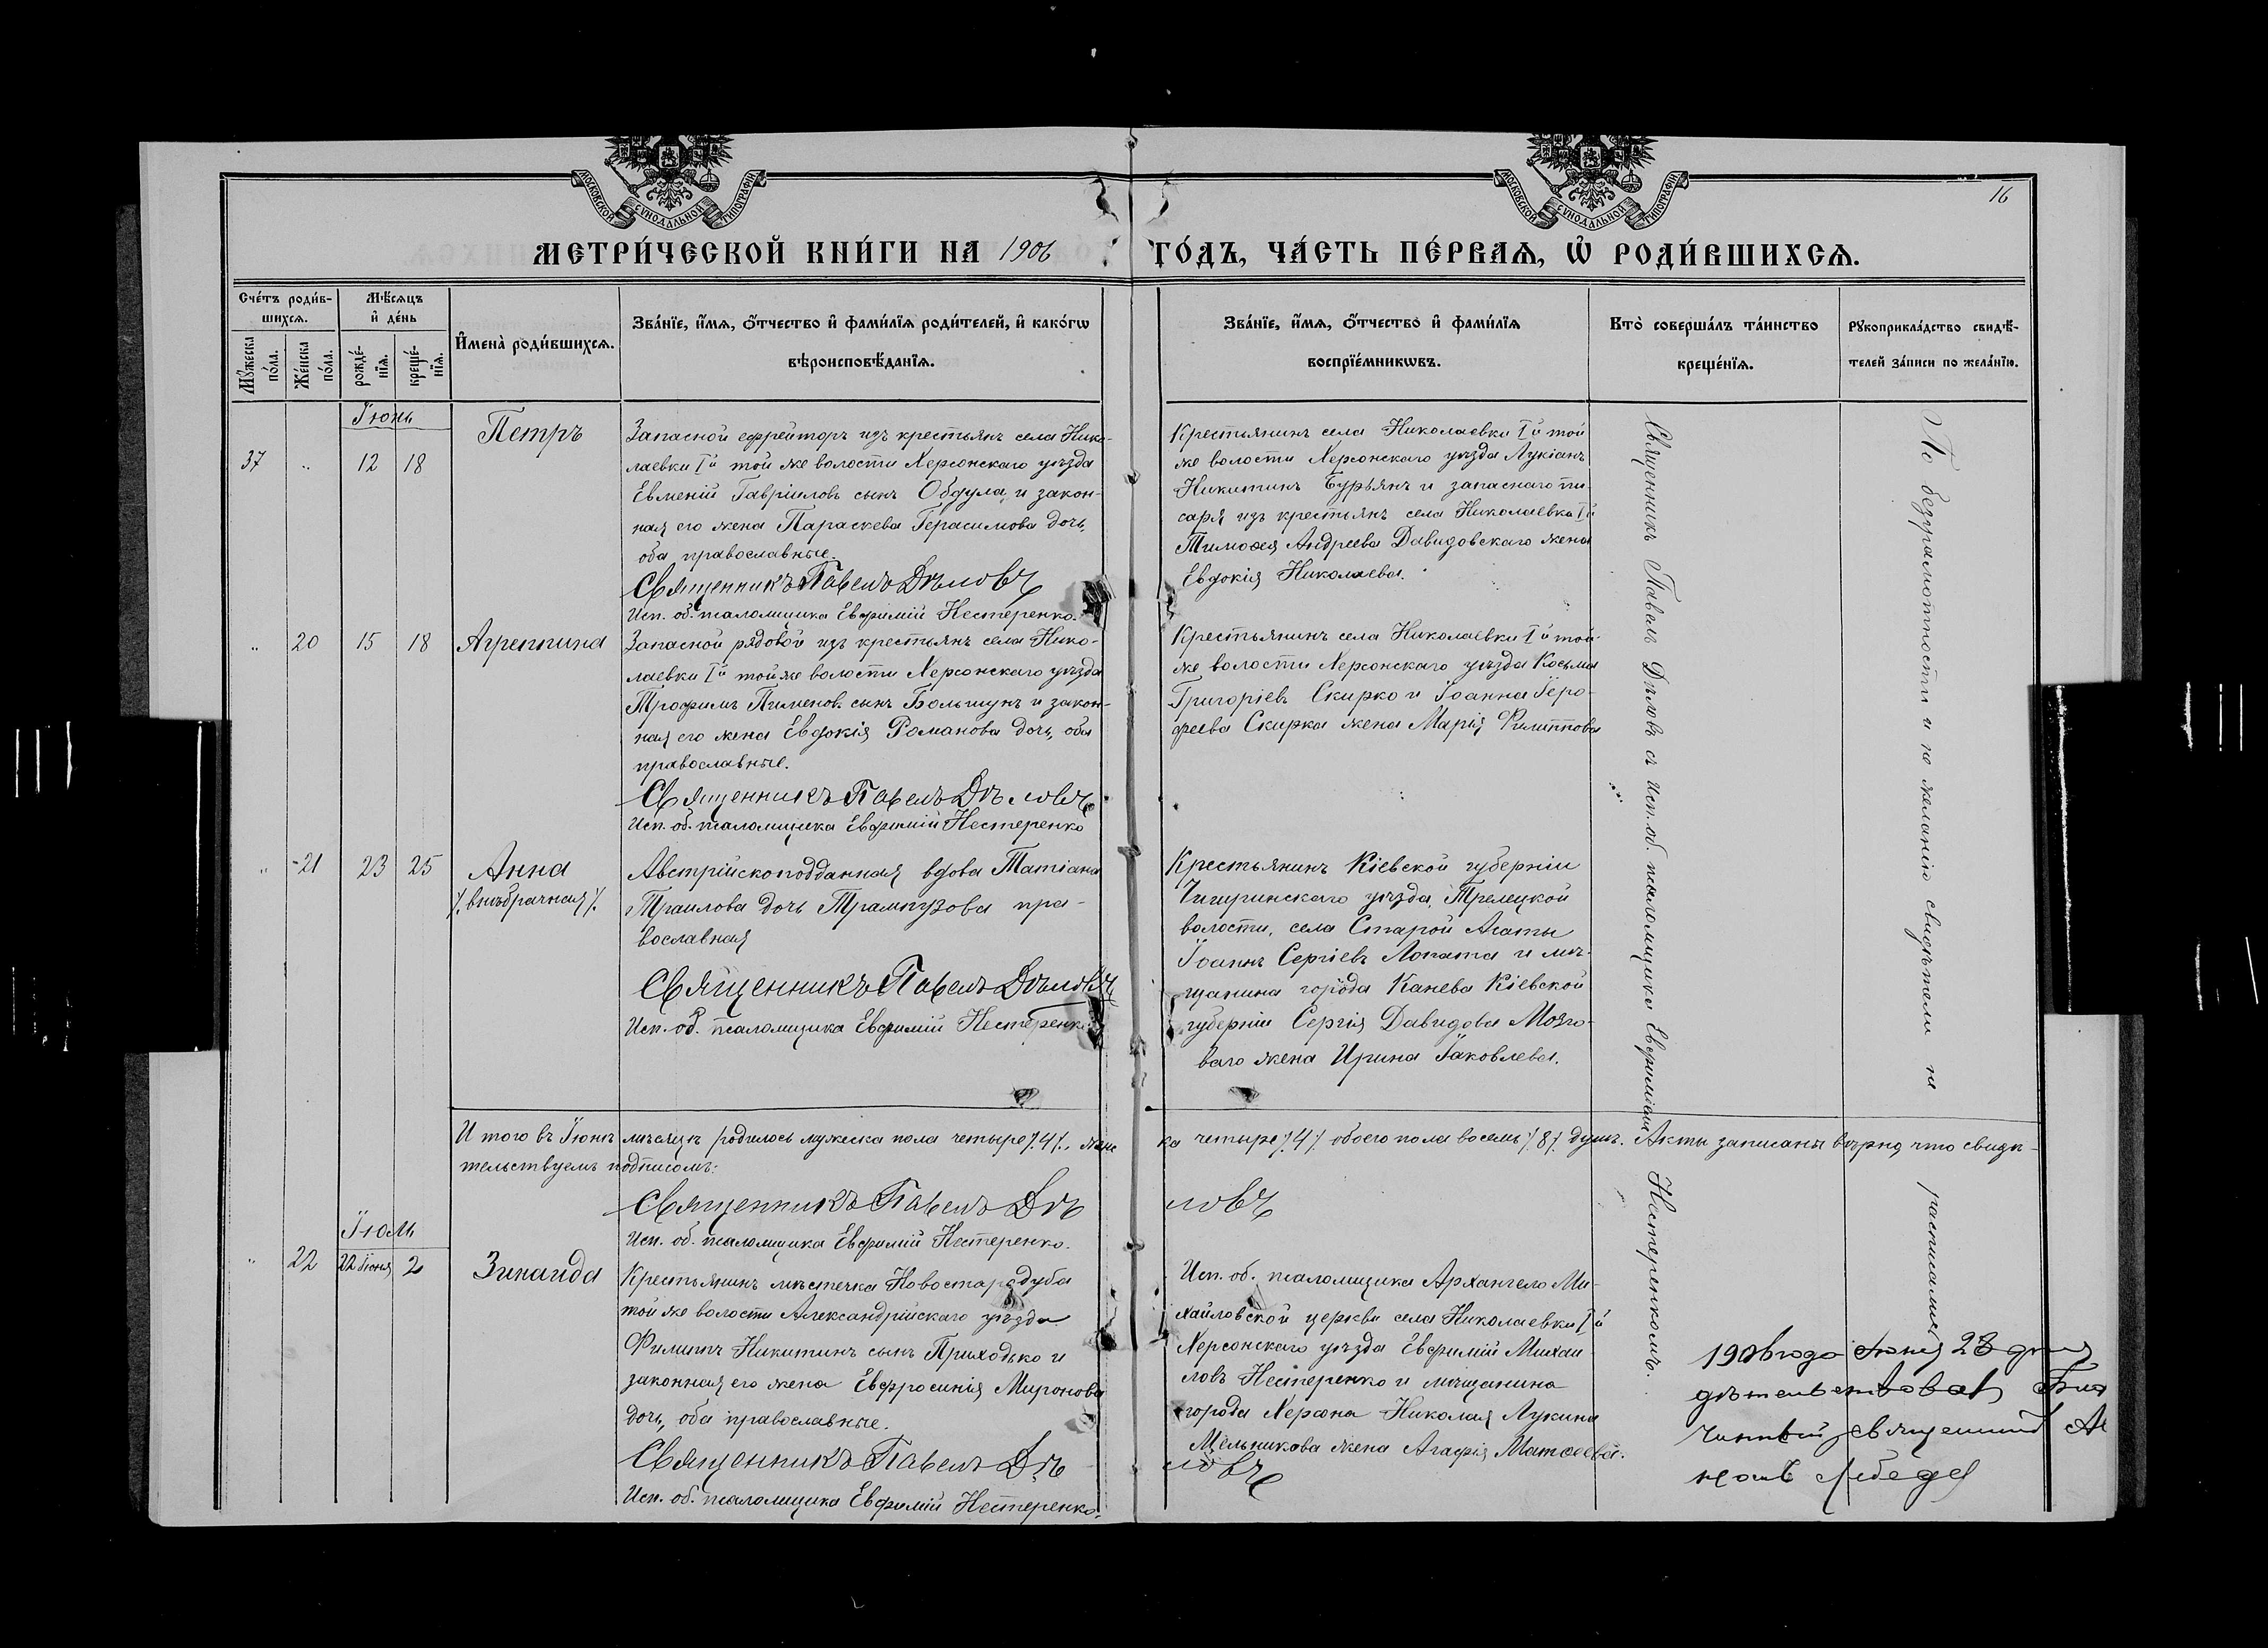 16
МОСКОВСКОЙ СУНОДАЛЬНОЙ ТИПОГРАФІИ
МОСКОВСКОЙ СУНОДАЛЬНОЙ ТИПОГРАФІИ
МЕТРИ́ЧЕСКОЙ КНИ́ГИ НА 1906 ГО́ДЪ, ЧА́СТЬ ПЕ́РВАѦ, Ѡ҆ РОДИ́ВШИХСѦ.
Сче́тъ роди́в-
шихсѧ.
Мꙋ́жеска по́ла.
Же́нска по́ла.
Мѣ́сѧцъ
и҆ де́нь
рожде́-
нїѧ.
креще́-
нїѧ.
И҆мена̀ роди́вшихсѧ.
Зва́нїе, и҆́мѧ, ѻ҆́тчество и҆ фами́лїѧ роди́телей, и҆ како́гѡ
вѣроисповѣ́данїѧ.
Зва́нїе, и҆́мѧ, ѻ҆́тчество и҆ фами́лїѧ
воспрїе́мникѡвъ.
Кто̀ соверша́лъ та́инство
креще́нїѧ.
Рꙋкоприкла́дство свидѣ́-
телей за́писи по жела́нїю.
Іюнь
37 " 12 18 Петръ
Запасной ефрейторъ изъ крестьянъ села Нико-
лаевки Iй той же волости Херсонскаго уѣзда
Евменій Гавріиловъ сынъ Обдула, и закон-
ная его жена Параскева Герасимова дочь,
оба православные.
Священникъ Павелъ Дѣловъ
Исп. об. псаломщика Евфимій Нестеренко.
Крестьянинъ села Николаевки Iй той
же волости Херсонскаго уѣзда Лукіанъ
Никитинъ Бурьянъ и запаснаго пи-
саря изъ крестьянъ села Николаевки Iй
Тимоѳея Андреева Давидовскаго жена
Евдокія Николаева.
" 20 15 18 Агреппина
Запасной рядовой изъ крестьянъ села Нико-
лаевки Iй той же волости Херсонскаго уѣзда
Трофимъ Пименов. сынъ Большунъ и закон-
ная его жена Евдокія Романова дочь, оба
православные.
Священникъ Павелъ Дѣловъ
Исп. об. псаломщика Евфимій Нестеренко
Крестьянинъ села Николаевки Iй той
же волости Херсонскаго уѣзда Косьма
Григоріевъ Скирко и Іоанна Іеро-
феева Скирка жена Марія Филиппова
" 21 23 25 Анна
/. внѣбрачная /.
Австрійскоподданная вдова Татіана
Траилова дочь Трампузова пра-
вославная
Священникъ Павелъ Дѣловъ
Исп. об. псаломщика Евфимій Нестеренко
Крестьянинъ Кіевской губерніи
Чигиринскаго уѣзда, Трелецкой
волости, села Старой Осоты
Іоаннъ Сергіевъ Лопата и мѣ-
щанина города Канева Кіевской
губерніи Сергія Давидова Мозго-
ваго жена Ирина Іаковлева.
И того въ Іюнѣ мѣсяцѣ родилось мужеска пола четыре /.4/., женс
ка четыре /.4/. обоего пола восемь /.8/. душъ. Акты записаны вѣрно, что свидѣ-
тельствуемъ подписомъ:
Священникъ Павелъ Дѣ ловъ
Исп. об. псаломщика Евфимій Нестеренко.
Іюль
" 22 22 Іюня 2 Зинаида
Крестьянинъ мѣстечка Новостародуба
той же волости Александрійскаго уѣзда
Филиппъ Никитинъ сынъ Приходько и
законная его жена Евфросинія Миронова
дочь, оба православные.
Священникъ Павелъ Дѣ ловъ
Исп. об. псаломщика Евфимій Нестеренко.
Исп. об. псаломщика Архангело Ми-
хайловской церкви села Николаевки Iй
Херсонскаго уѣзда Евфимій Михаи
ловъ Нестеренко и мѣщанина
города Херсона Николая Лукина
Мельникова жена Агафія Матѳеева.
Священникъ Павелъ Дѣловъ съ исп. об. псаломщика Евфиміемъ Нестеренкомъ.
По безграмотности и не желанію свидѣтели не расписались
1906 года Іюня 28 дня